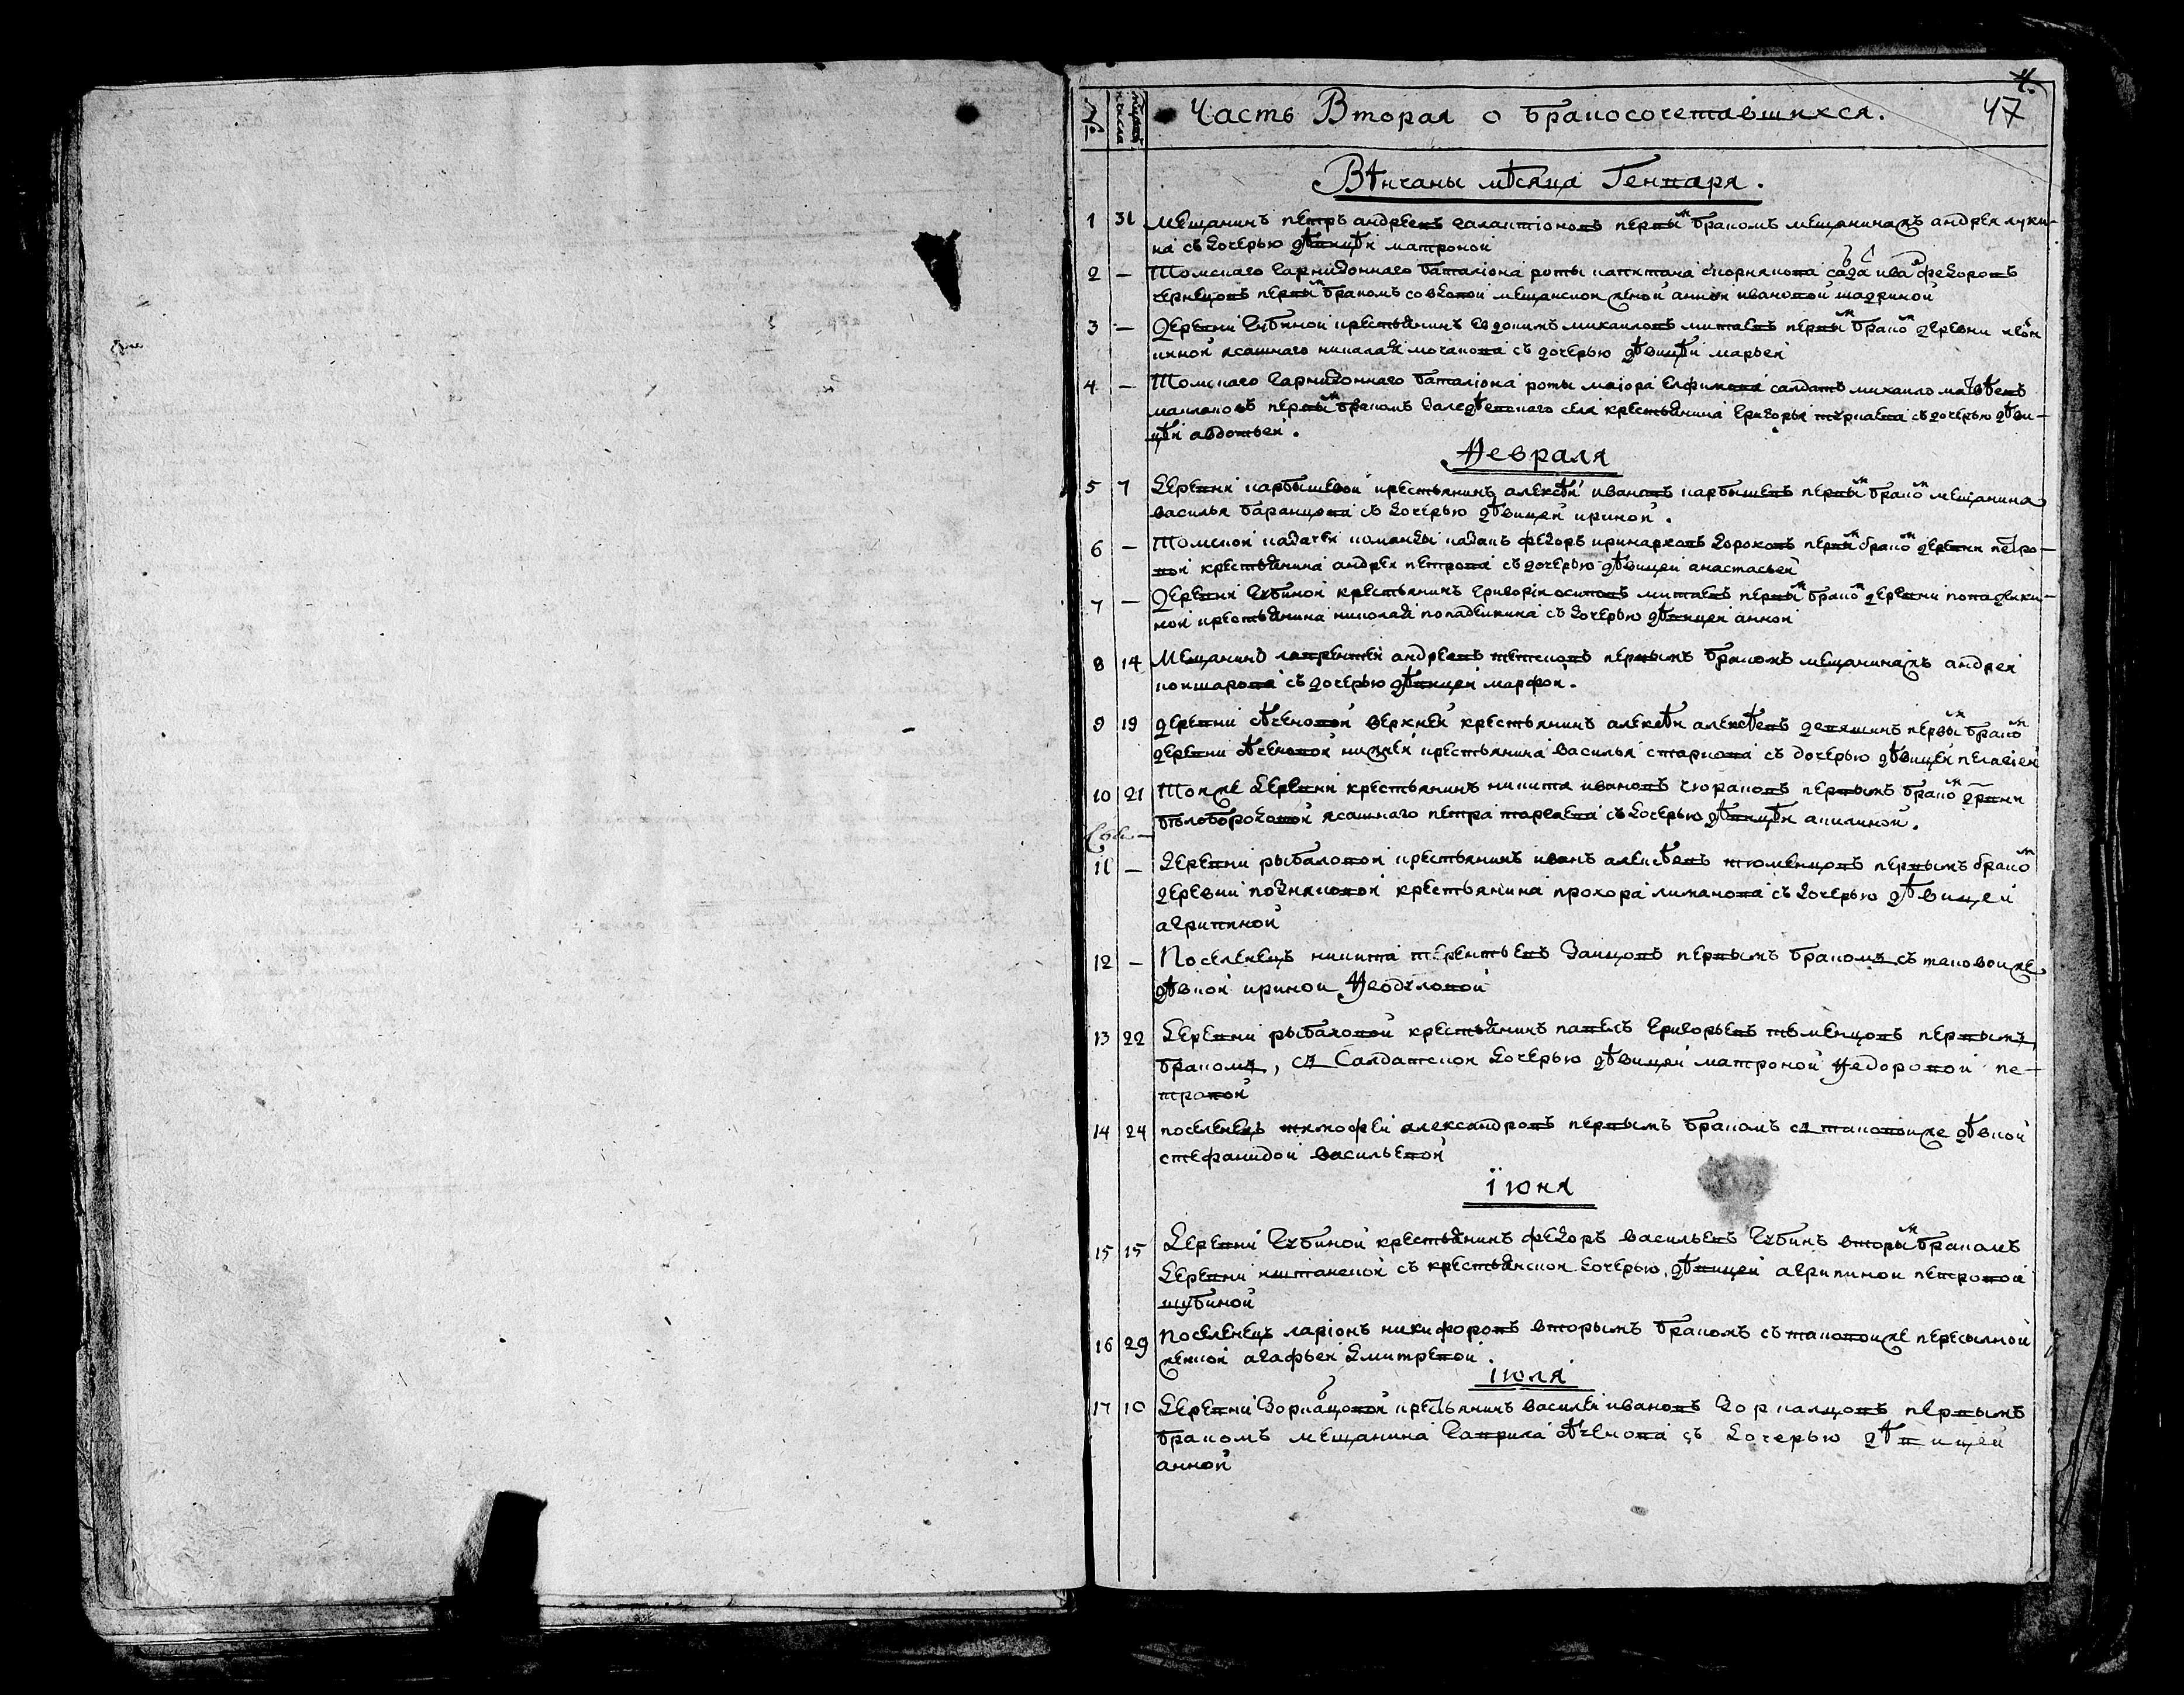 47
Часть Вторая о бракосочетавшихся.
Вѣнчаны мѣсяца Генваря.
1 31 Мещанинъ петръ андреевъ галактіоновъ первым бракомъ мещанина андрея луки-
на съ дочерью дѣвицѣй матроной
2 — Томскаго гарнизоннаго баталіона роты капитана скорнякова салдат иван федоровъ
чернецовъ первым бракомъ со вдовой мещанской женой анной ивановой шадриной
3 — Деревни губиной крестьянинъ евдокимъ михаиловъ митаевъ первым браком деревни
ясашнаго николая мочакова съ дочерью дѣвицѣй марьей
4 — Томскаго гарнизоннаго баталіона роты маіора салдатъ михаило матвѣевъ
маилаковъ первым бракомъ села крестьянина григорья съ дочерью дѣви-
цѣй авдотьей.
Февраля
5 7 Деревни карбышевой крестьянинъ алексѣй ивановъ карбышевъ первым браком мещанина
василья баранцова съ дочерью дѣвицей ириной.
6 — Томской казачей команды казакъ федоръ принарховъ дороховъ первым браком деревни петро-
вой крестьянина андрея петрова съ дочерью дѣвицей анастасьей
7 — Деревни губиной крестьянинъ григорій осиповъ митаевъ первым браком деревни попадейки-
ной крестьянина николая попадейкина съ дочерью дѣвицей анной
8 14 Мещанинъ лаврентей андреевъ первымъ бракомъ мещанина андрея
кокшарова съ дочерью дѣвицей марфой.
9 19 деревни сѣченовой верхней крестьянинъ алексѣй алексѣевъ девяшинъ первым браком
деревни сѣченовой нижней крестьянина василья старкова съ дочерью дѣвицей пелагіей
10 21 Тояже деревни крестьянинъ никита ивановъ чюраковъ первымъ браком дрвни
бѣлобородовой ясашнаго петра съ дочерью дѣвицѣй акилиной.
11 — Деревни рыбаловой крестьянинъ иванъ алексѣевъ тюменцовъ первымъ браком
деревни позняковой крестьянина прохора лиханова съ дочерью дѣвицей
агрипиной
12 — Поселенецъ никита терентьевъ Заицовъ первымъ бракомъ съ таковойже
дѣвкой ириной Феодуловой
13 22 Деревни рыбаловой крестьянинъ павелъ григорьевъ тюменцовъ первымъ
бракомъ, съ Салдатской дочерью дѣвицей матроной Федоровой пе-
тровой
14 24 поселенецъ тимофей александровъ первымъ бракомъ съ таковойже дѣвкой
стефанидой васильевой
іюня
15 15 Деревни губиной крестьянинъ федоръ васильевъ губинъ вторым бракомъ
деревни съ крестьянской дочерью, дѣвицей агрипиной петровой
шубиной
16 29 поселенецъ ларіонъ никифоровъ вторымъ бракомъ съ таковойже пересылной
женкой агафьей дмитревой.
іюля
17 10 Деревни Зоркальцовой крестьянинъ василей ивановъ Зоркалцовъ первымъ
бракомъ мещанина гаврила сѣченова съ дочерью дѣвицей
анной